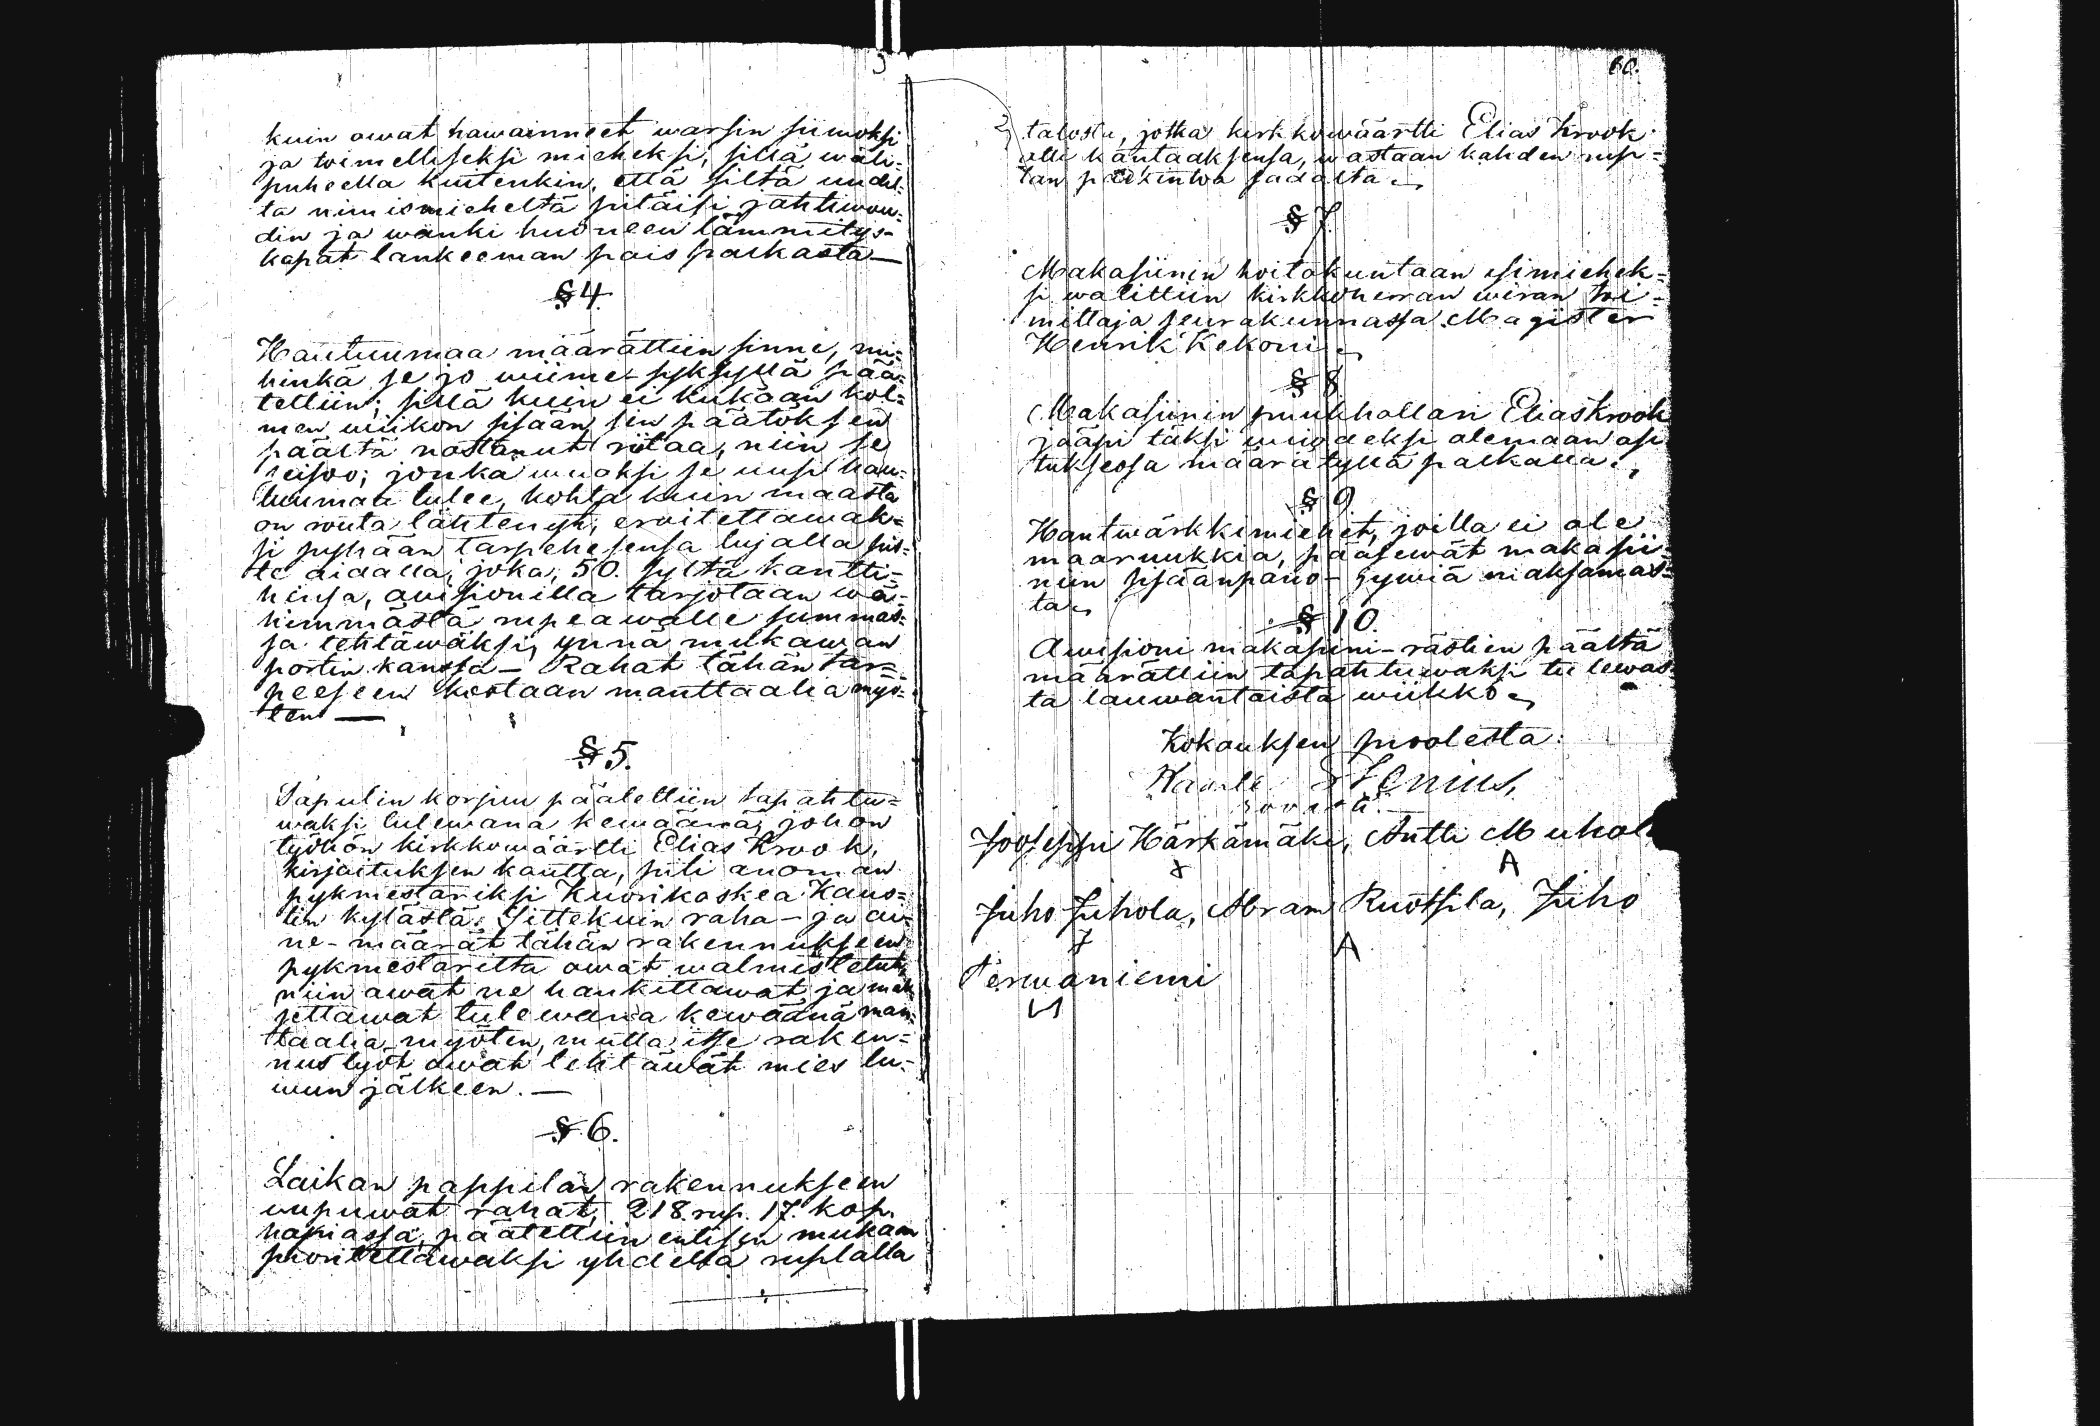 kuin owat hawainneet warsin siiwoksi
ja toimelliseksi mieheksi, sillä wäli-
puheella kuitenkin, että siltä uudel-
ta nimismieheltä pitäisi jahtiwou-
din ja wanki huoneen lämmitys-
kapat lankeeman pois palkasta —
§ 4.
Hautuumaa määrättiin sinne, mi-
hinkä se jo wiime-syksyllä pää-
tettiin; sillä kuin ei kukaan kol-
men wiikon sisään sen päätöksen
päältä nostanut riitaa, niin se
seisoo; jonka wuoksi se uusi hau-
tuumaa tulee, kohta kuin maasta
on routa lähtenyt, eroitettawak-
si pyhään tarpeheseensa lujalla pis-
te aidalla, joka, 50. syltä kantti-
hinsa, auksionilla tarjotaan wä-
himmästä rupeawalle summas-
sa tehtäwäksi, ynnä mukawan
portin kanssa — Rahat tähän tar-
peeseen kootaan manttaalia myö-
ten —
§ 5.
Tapulin korjuu päätettiin tapahtu-
waksi tulewana kewäänä, johon
työhön kirkkowäärtti Elias Krook,
kirjoituksen kautta, piti anoman
pykmestariksi Kuorikoskea Kaus-
tin kylästä. Sittekuin raha- ja ai-
ne-määrät tähän rakennukseen
pykmestarilta owat walmistetut,
niin owat ne hankittawat ja mak
settawat tulewana kewäänä man-
taalia myöten, mutta itse raken-
nustyöt owat tehtäwät mies lu-
wun jälkeen. —
§ 6.
Laikan pappilan rakennukseen
uupuwat rahat, 218. rup. 17. kop.
hopiassa, päätettiin entisen mukaan
suoritettawaksi yhdellä ruplalla
60.
talosta, jotka kirkkowäärtti Elias Krook
otti kantaaksensa, wastaan kahden rup-
lan palkintoa sadalta.
§ 7
Makasiinin hoitokuntaan esimiehek-
si walittiin kirkkoherran wiran toi-
mittaja seurakunnassa Magister
Henrik Kekoni.
§ 8
Makasiinin puukhollari Elias Krook
jääpi täksi wuodeksi olemaan asi
tuksessa määrätyllä palkalla.
§ 9
Hantwärkkimiehet, joilla ei ole
maaruukkia, pääsewät makasii-
niin sisäänpano-jywiä maksamas-
ta.
§ 10.
Auksioni makasiini-rästien päältä
määrättiin tapahtuwaksi tulewas-
ta lauwantaista wiikko.
Kokouksen puolesta:
Jooseppi Härkämäki, Antti Muhol
Juho Juhola, Abram Ruotsila, Juho
Terwaniemi